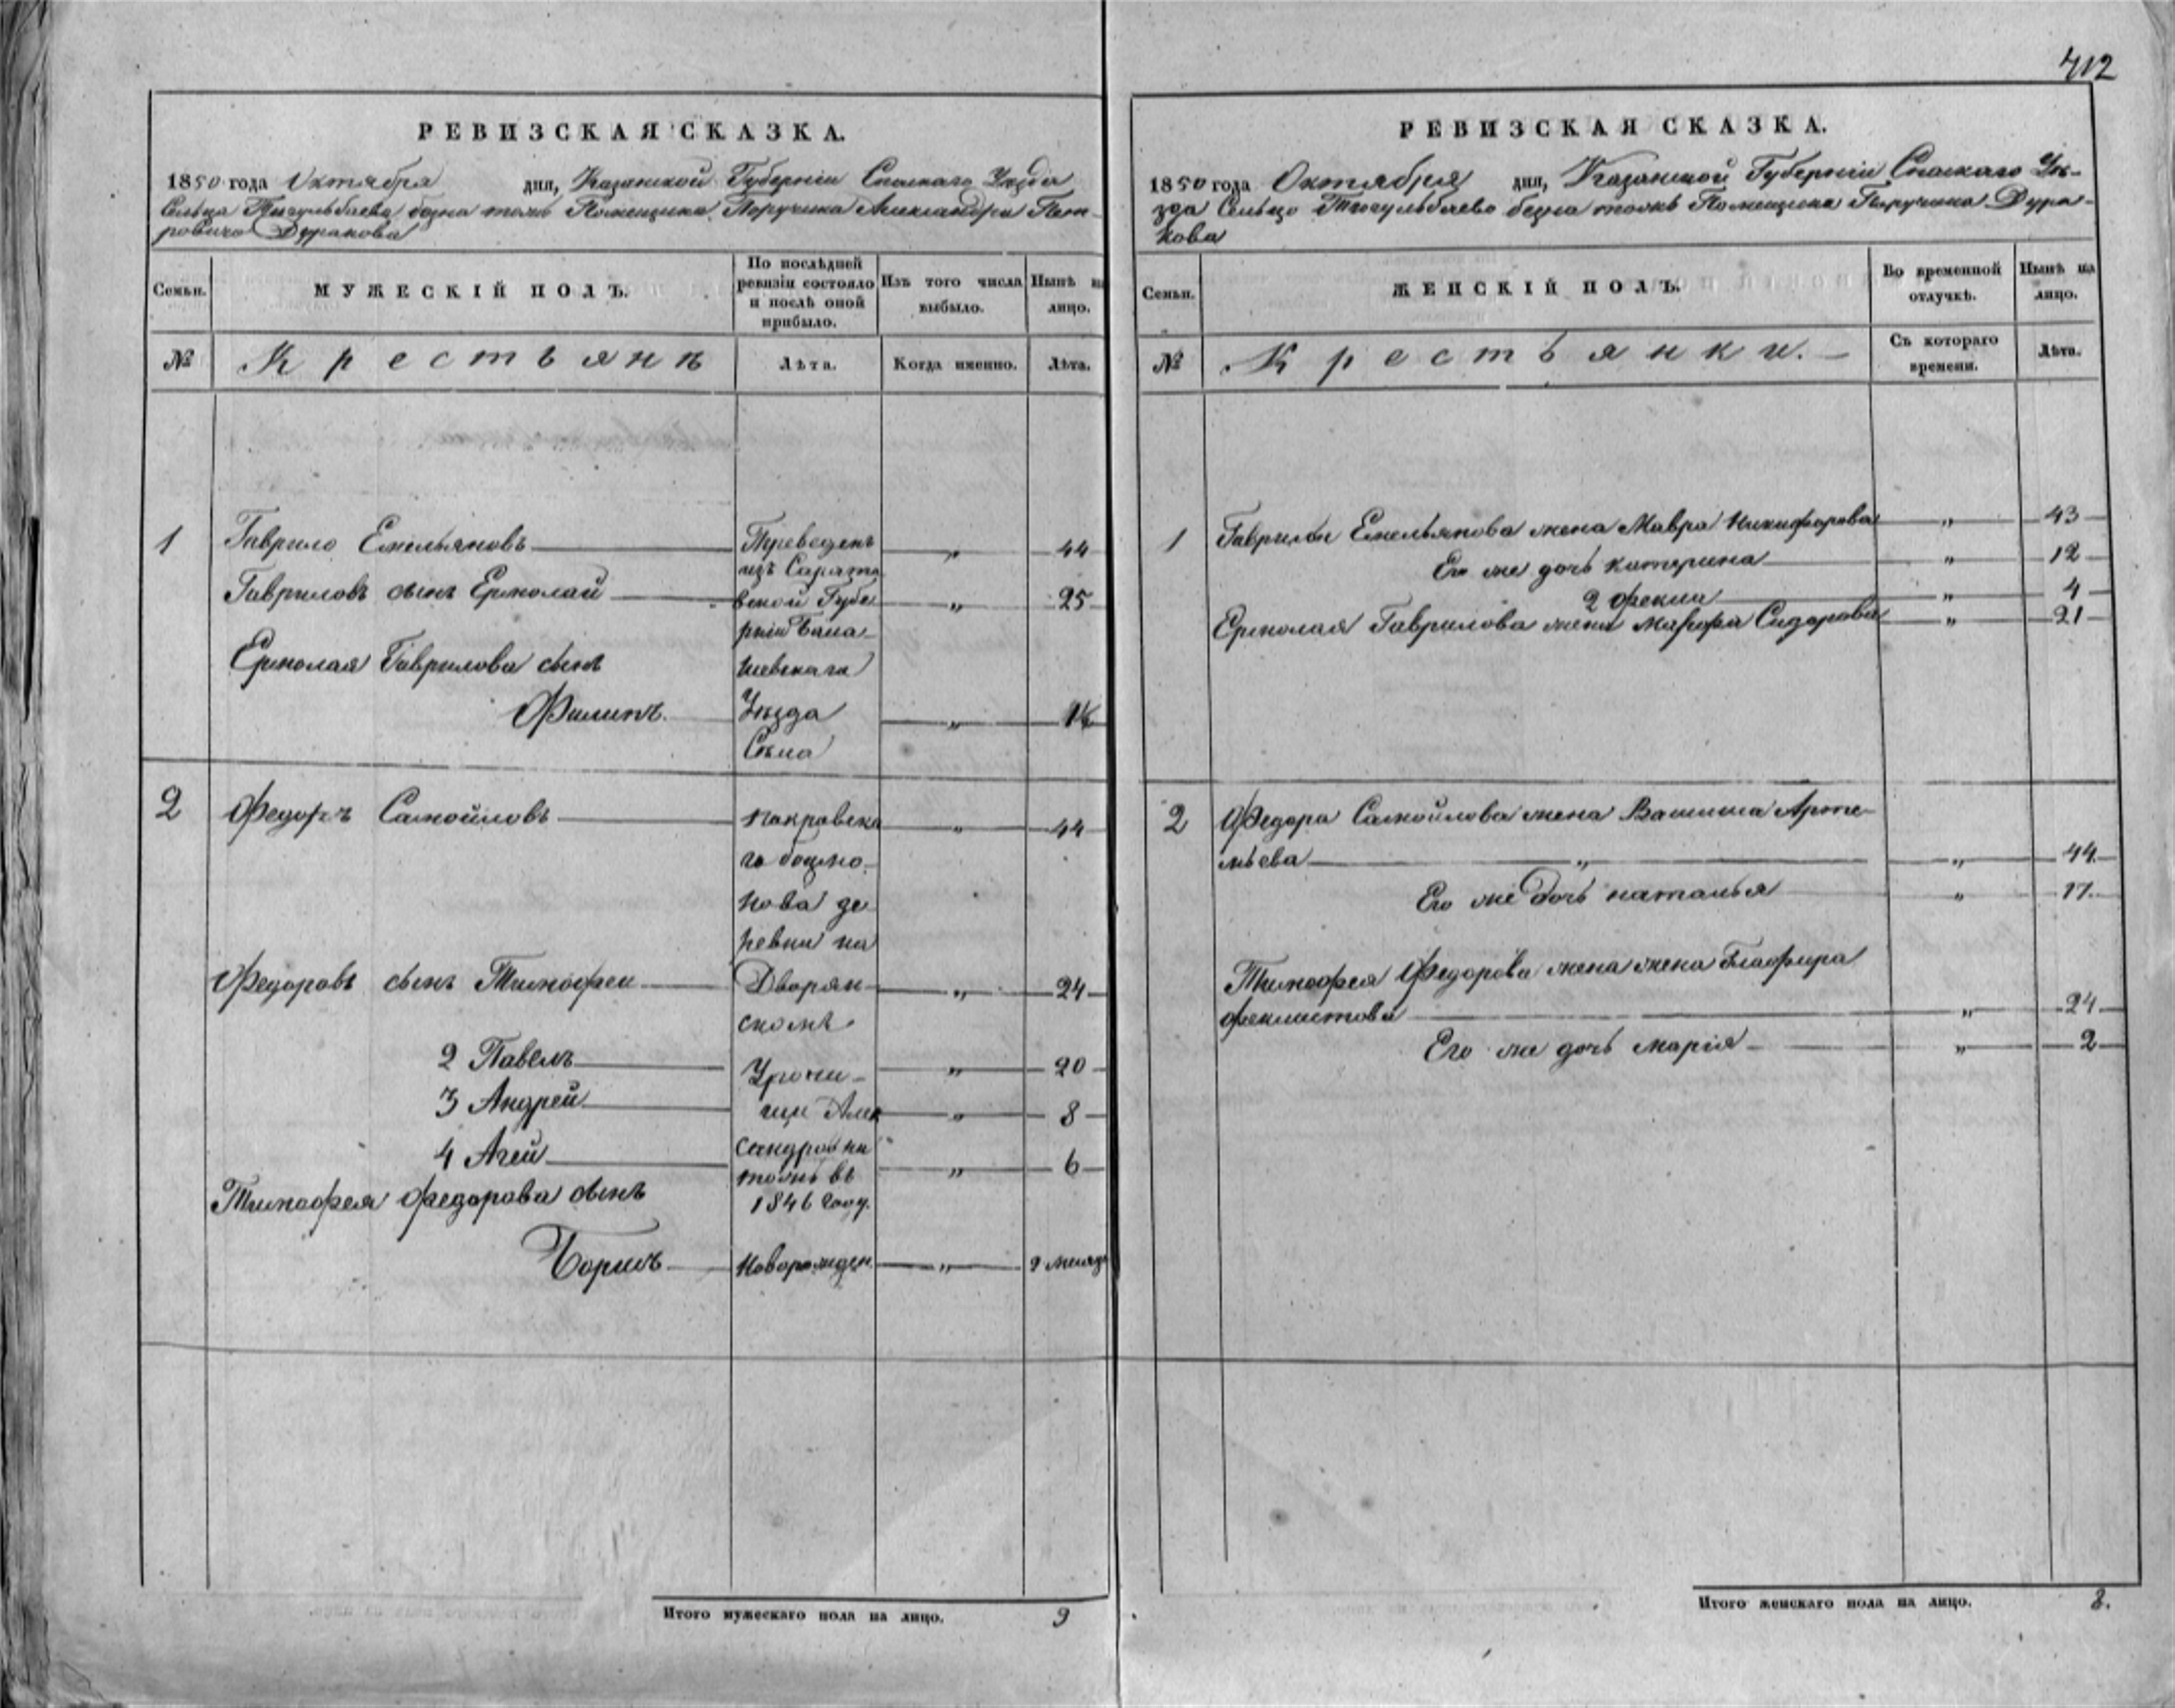 412
РЕВИЗСКАЯ СКАЗКА.
1850 года Октября дня, Казанской Губерніи Спаскаго Уезда
Сельца Тюгульбаева тожъ Помещика Поручика Александра Пет-
ровича Дуракова
Семьи. МУЖЕСКІЙ ПОЛЪ. По послѣдней ревизіи состояло и послѣ оной прибыло. Изъ того числа выбыло. Нынѣ на лицо.
№ Крестьянъ Лѣта. Когда именно. Лѣта.
1 Гаврило Емельяновъ Переведенъ „ 44
изъ Сарато
Гавриловъ сынъ Ермолай вской Губе „ 25
рніи Бала
Ермолая Гаврилова сынъ шевскаго
Филипъ. Уезда „
Села
2 Федоръ Самойловъ Покровска „ 44
го
нова де
ревни на
Федоровъ сынъ Тимофеи Дворян „ 24
скомъ
2 Павелъ Урочи- „ 20
3 Андрей щи Алек „ 8
4 Агей сандровка „ 6
тожъ въ
Тимофея Федорова сынъ 1846 году.
Борисъ Новорожден „ 9 месяц
Итого мужескаго пола на лицо. 9
РЕВИЗСКАЯ СКАЗКА.
1850 года Октября дня, Казанской Губерніи Спаскаго Уе-
зда Сельцо Тюгульбаево тожъ Помещика Поручика Дура-
кова
Семьи. ЖЕНСКІЙ ПОЛЪ. Во временной отлучкѣ. Нынѣ на лицо.
№ Крестьянки. Съ котораго времени. Лѣта.
1 Гаврилы Емельянова жена Мавра Никифорова „ 43
Его же дочь катерина „ 12
2 фекла „ 4
Ермолая Гаврилова жена Марфа Сидорова „ 21
2 Федора Самойлова жена Васина Арте-
мьева „ „ 44
Его же дочь наталья „ 17.
Тимофея Федорова жена жена Глафира
феклистова „ 24
Его же дочь марія „ 2
Итого женскаго пола на лицо. 8.